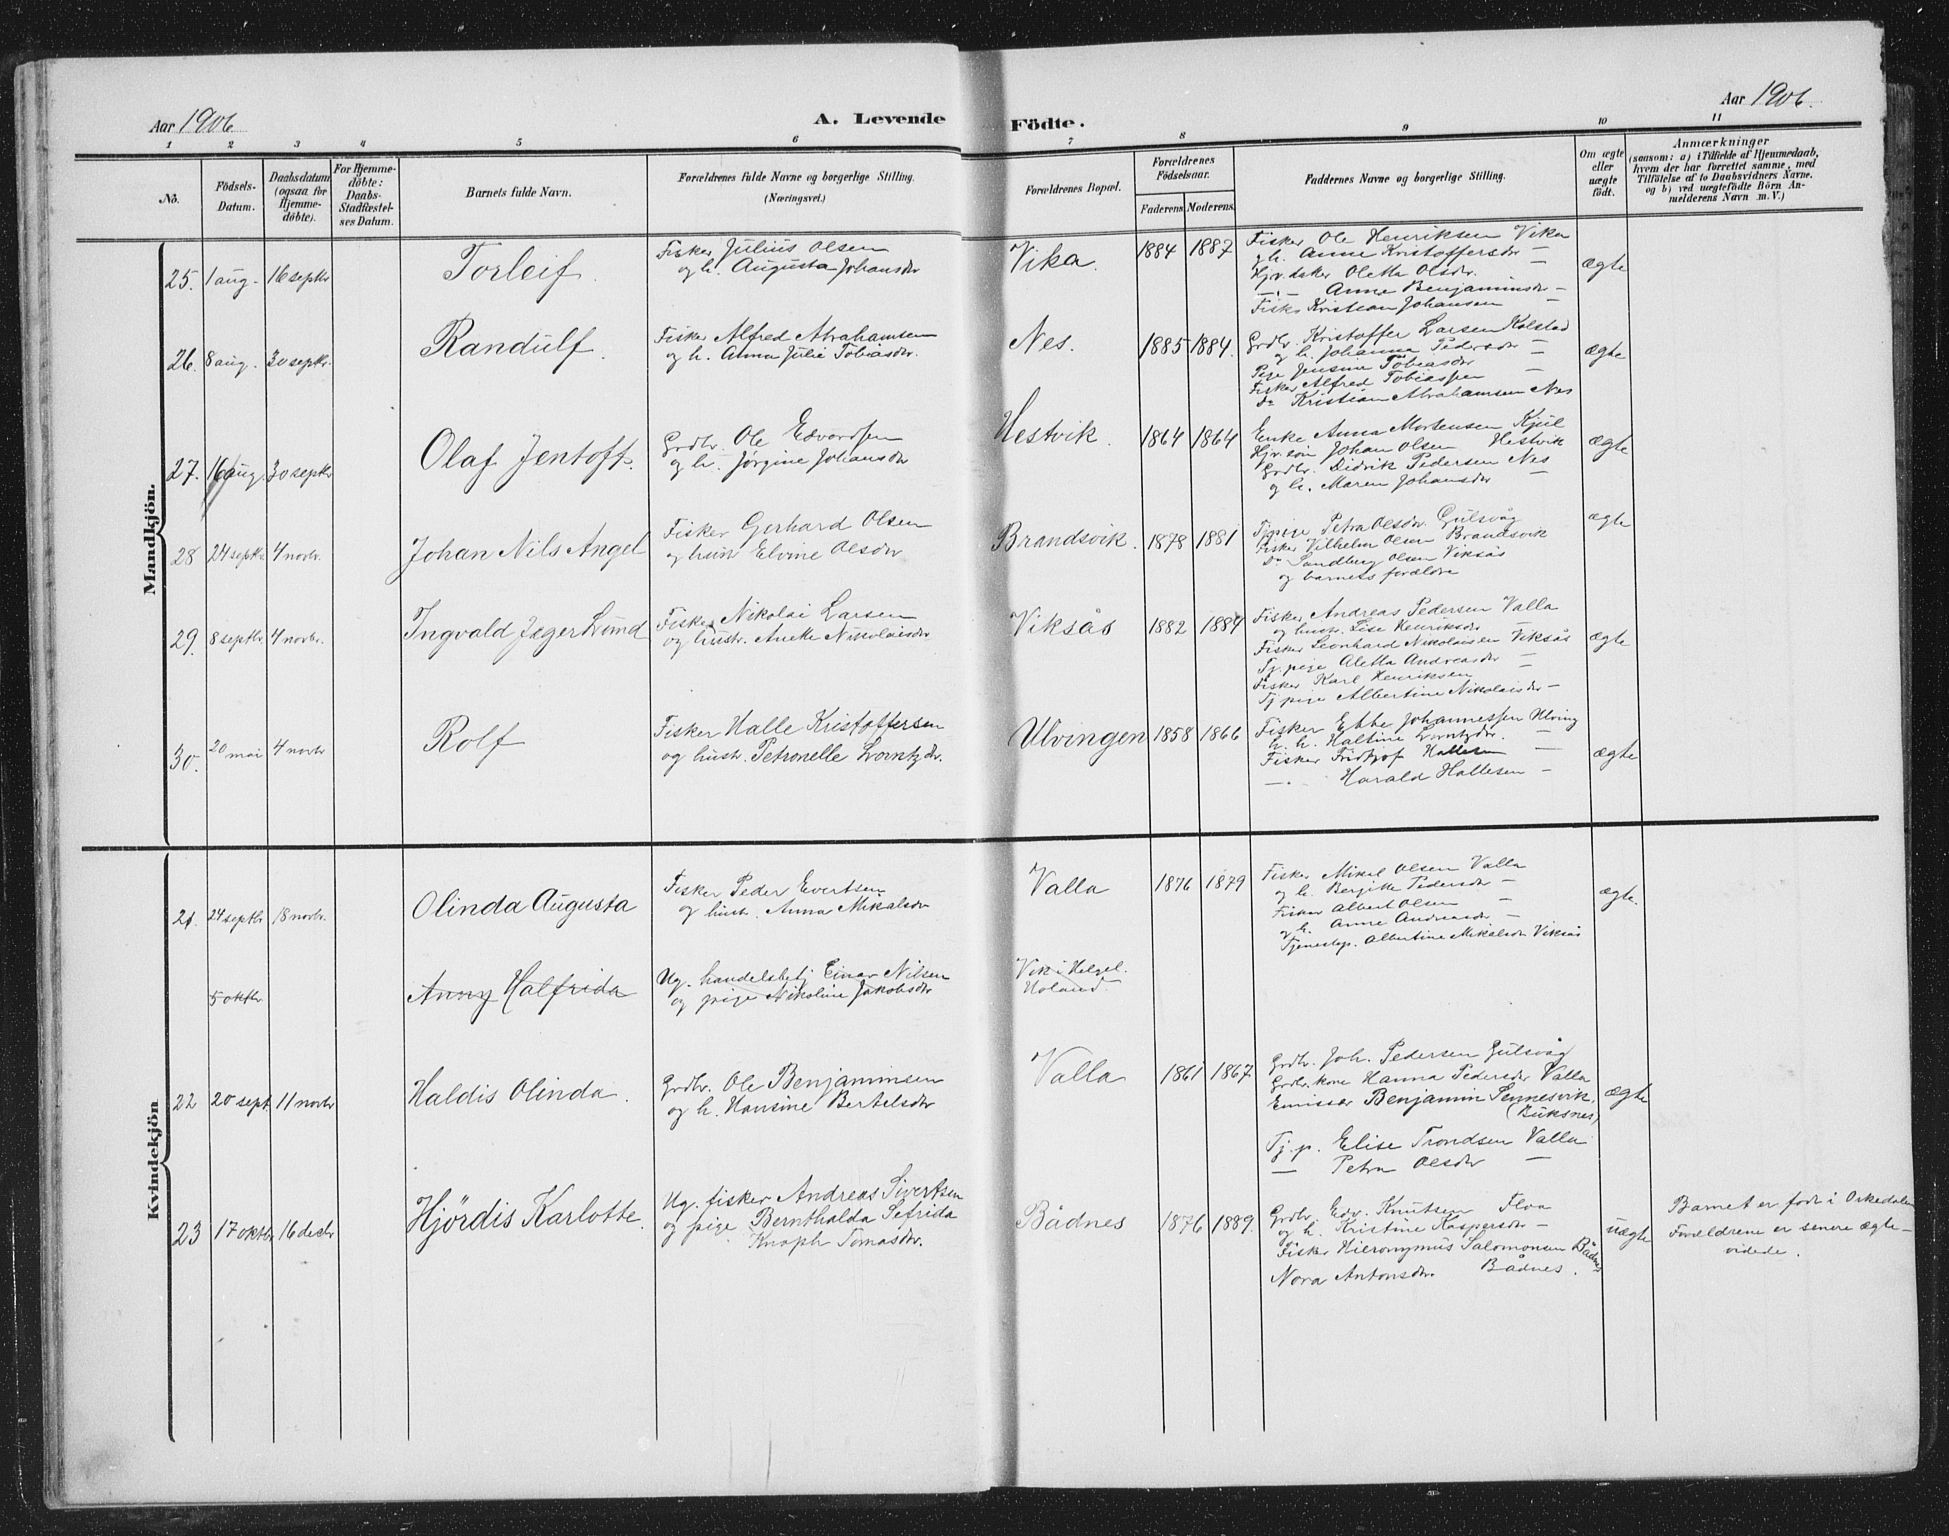 Aar 1906.
A. Levende Födte.
Aar 1906.
1 2 3 4 5 6 7 8 9 10 11
No.
Födsels-Datum.
Daabsdatum (ogsaa for Hjemmedöbte).
For Hjemmedöbte: Daabs-Stadfæstelses Datum.
Barnets fulde Navn.
Forældrenes fulde Navne og borgerlige Stilling. (Næringsvei.)
Forældrenes Bopæl.
Forældrenes Födselsaar.
Faderens. Moderens.
Faddernes Navne og borgerlige Stilling.
Om ægte eller uægte födt.
Anmærkninger
(saasom: a) i Tilfælde af Hjemmedaab,
hvem der har forrettet samme, med
Tilföielse af to Daabsvidners Navne.
og b) ved uægtefödte Börn An-
melderens Navn m. V.)
Mandkjön.
25. 1 aug. 16 septbr Torleif.
Fisker Julius Olsen
og h. Augusta Johansdr
Vika. 1884 1887
Fisker Ole Henriksen Vika
og h. Anne Kristoffersdr —
Hjv. dater Oletta Olsdr.
—"— Anne Benjaminsdr —
Fisk. Kristian Johansen —
ægte
26. 8 aug. 30 septbr. Randulf.
Fisker Alfred Abrahamsen
og h. Anna Julie Tobiasdr.
Nes. 1885 1884.
Grdbr. Kristoffer Larsen Kolstad
og h. Johanna Pedersdr —
Pige Jensine Tobiasdr —
Fisker Alfred Tobiassen —
Do Kristian Abrahamsen Nes
ægte
27. 16 aug. 30 septbr Olaf Jentoft.
Grdbr. Ole Edvardsen
og h. Jørgine Johansdr
Hestvik. 1864 1864
Enke Anna Mortensen Kjul
Hjv. søn Johan Olsen Hestvik
Grdbr. Didrik Pedersen Nes
og h. Maren Johansdr —
ægte
28 24 septbr 4 novbr. Johan Nils Angel
Fisker Gerhard Olsen
og hun Elvine Olsdr.
Brandsvik. 1878 1881
Tj. pige Petra Olsdr. Gulsvåg
Fisker Vilhelm Olsen Brandsvik
Do Sandberg Olsen Viksås
og barnets forældre
ægte
29. 8 septbr 4 novbr. Ingvald Jæger Lund
Fisker Nikolai Larsen
og hustr. Aneke Nikolaisdr
Viksås 1882 1884
Fisker Andreas Pedersen Valla
og hustr. Lise Henriksdr —
Fisker Leonhard Nikolaisen Viksås
Tj. pige Aletta Andreasdr —
Fisker Karl Henriksen
Tj. pige Albertine Nikolaisdr —
ægte
30. 20 mai 4 novbr Rolf
Fisker Halle Kristoffersen
og hustr. Petronelle Lorntzdr.
Ulvingen 1858 1866
Fisker Ebbe Johannessen Ulving
h. h. Haltine Lorntzdr. —
Fisker Fridtjof Hallesen —
—"— Harald Hallesen —
ægte
Kvindekjön
21. 24 septbr 18 novbr. Olinda Augusta
Fisker Peder Evertsen
og hustr. Anna Mikalsdr
Valla 1876 1879
Fisker Mikal Olsen Valla
og h. Berjitte Pedersdr —
Fisker Albert Olsen —
og h. Anne Andreasdr —
Tjenestep. Albertine Mikalsdr Viksås
ægte.
5 oktbr. Anny Halfrida
Ug. handelsbetj Einar Nilsen
og pige Nikoline Jakobsdr
Vik i Helgel.
Holand.
22 20 sept. 11 novbr Haldis Olinda.
Grdbr. Ole Benjaminsen
og h. Hansine Bertelsdr
Valla 1861 1867
Grdbr. Joh. Pedersen Gulsvåg
Grdbr. kone Hanna Pedersdr Valla
Emissær Benjamin Sennesvik,
(Buksnes)
Tj. p. Elise Trondsen Valla
— Petra Olsdr —
ægte
23 17 oktbr 16 decbr Hjördis Karlotte.
Ug. fisker Andreas Sivertsen
og pige Bernthalda Petrida
Knoph Tomasdr.
Bådnes 1876 1889.
Grdbr. Edv. Knutsen Floa
og h. Kristine Kaspersdr —
Fisker Hieronymus Salomonsen Bådnes
Nora Antonsdr. Bådnes.
uægte
Barnet er født i Orkedalen
Forældrene er senere ægte-
viede.